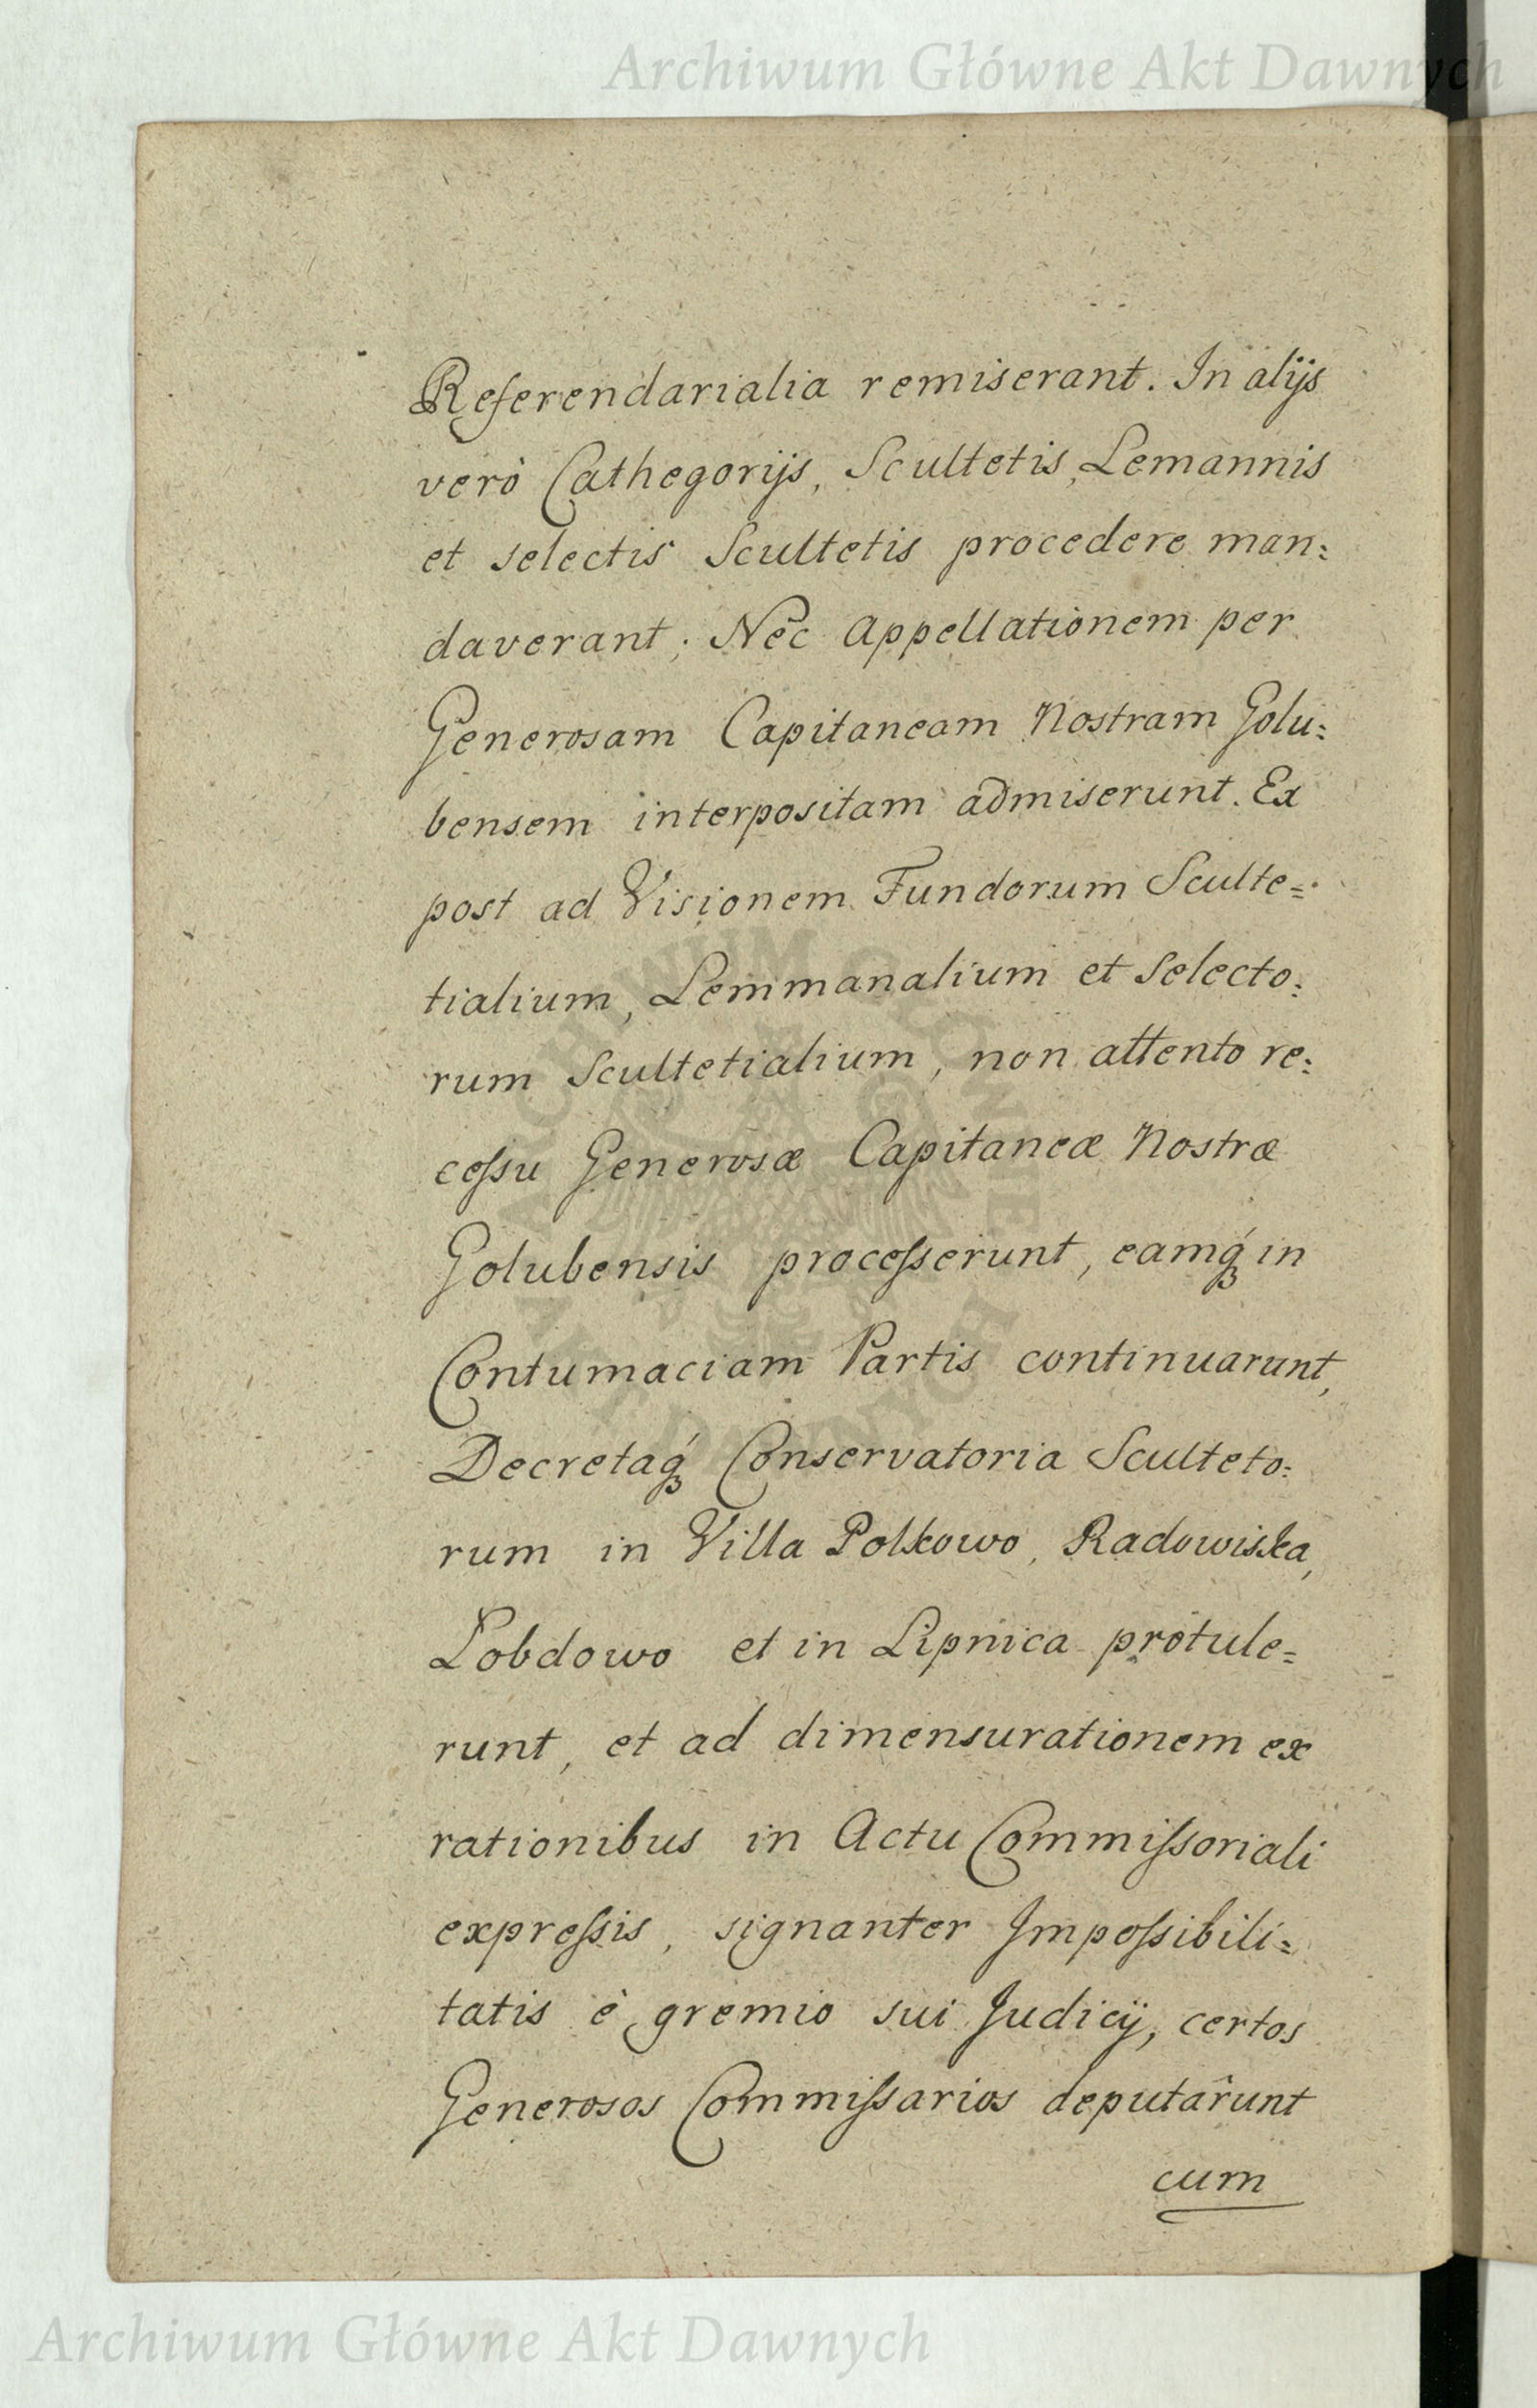 Archiwum Główne Akt Dawnych
Referendarialia remiserant. In alijs
verò Cathegorijs, Scultetis, Lemannis
et selectis Scultetis procedere man:
daverant; Nec Appellationem per
Generosam Capitaneam Nostram Golu:
bensem interpositam admiserunt. Ex
post ad Visionem Fundorum Sculte=
tialium, Lemmanalium et Selecto:
rum Scultetialium, non attento re:
cessu Generosæ Capitaneæ Nostræ
Golubensis processerunt, eamq́ in
Contumaciam Partis continuarunt,
Decretaq́ Conservatoria Sculteto:
rum in Villa Polkowo, Radowiska,
Łobdowo et in Lipnica protule=
runt, et ad dimensurationem ex
rationibus in Actu Commissoriali
expressis, signanter Impossibili=
tatis è gremio sui Judicij, certos
Generosos Commissarios deputârunt
cum
ARCHIWUM GŁÓWNE
AKT DAWNYCH
Archiwum Główne Akt Dawnych